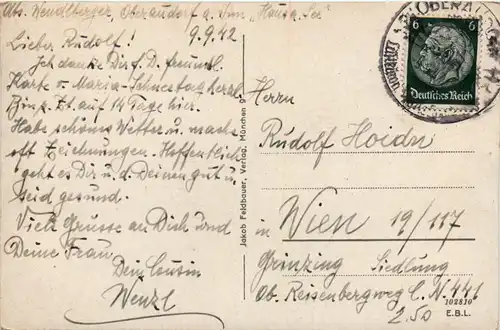 Abs. Wendlberger, Oberaudorf a. Inn "Haus a. See"
9.9.42
Lieber Rudolf!
Ich danke Dir f. D. freundl.
Karte v. Maria-Schnee herzl.
Bin z. Zt. auf 14 Tage hier.
Habe schönes Wetter u. mache
oft Zeichnungen. Hoffentlich
geht es Dir u. d. Deinen gut u.
seid gesund.
Viele Grüsse an Dich und
Deine Frau
Dein Cousin
Wenzl
Jakob Feldbauer, Verlag, München 9
OBERAUDORF
6 6
Deutsches Reich
Herrn
Rudolf Hoidn
in Wien 19/117
Grinzing Siedlung
Ob. Reisenbergweg C. N. 441
2.50
102810
E.B.L.